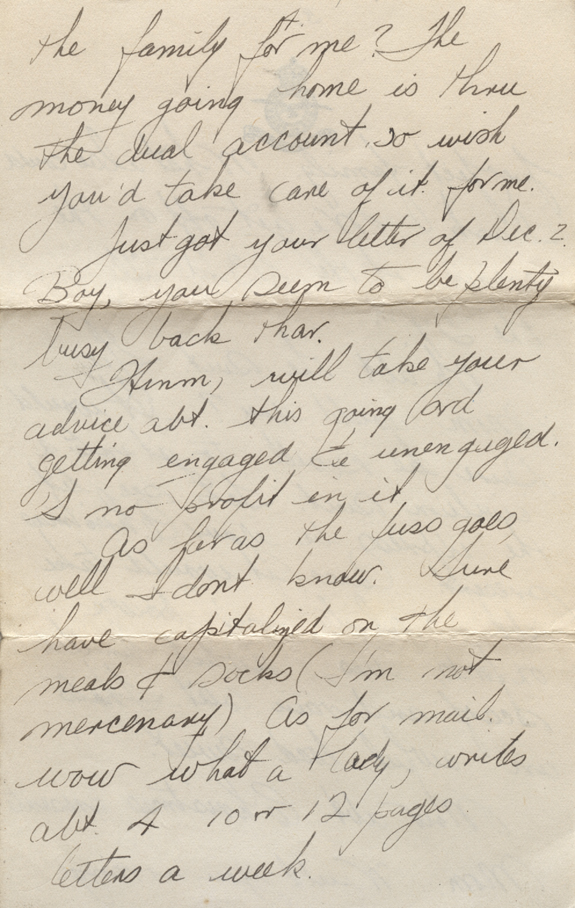 the family for me? The
money going home is thru
the dual account. So wish
you'd take care of it for me.
Just got your letter of Dec. 2.
Boy, you seem to be plenty
busy back thar.
Hmm, will take your
advice abt. this going and
getting engaged & unengaged.
S no profit in it
As far as the fuss goes,
well I dont know. Sure
have capitalized on the
meals & socks (I'm not
mercenary) As for mail.
wow what a lady, writes
abt. 4 10 or 12 pages
letters a week.